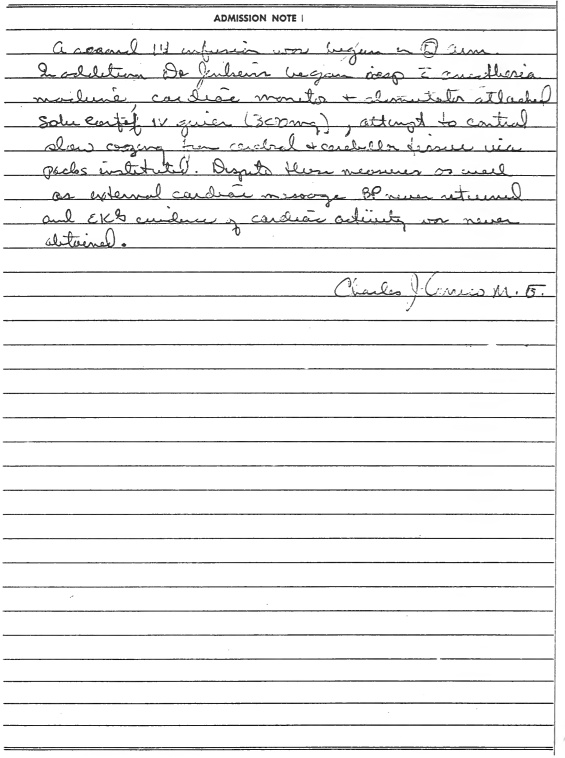 ADMISSION NOTE
A second IV infusion was begun in Ⓛ arm.
In addition Dr Jenkins began resp c̄ anesthesia
machine, cardiac monitor + stimulator attached
solu cortef IV given (300mg), attempt to control
slow oozing from cerebral + cerebellar tissue via
packs instituted. Despite these measures as well
as external cardiac message BP never returned
and EKG evidence of cardiac activity was never
obtained.
Charles J. Carrico M.D.